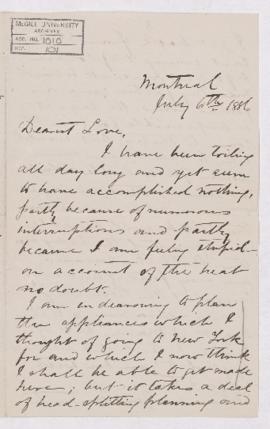 McGILL UNIVERSITY
ARCHIVES
ACC. NO. 1010
REF. 101
Montreal
July 6th 1886
Dearest Love,
I have been toiling
all day long and yet seem
to have accomplished nothing,
partly because of numerous
interruptions and partly
because I am feeling stupid -
on account of the heat
no doubt.
I am endeavoring to plan
the appliances which I
thought of going to New York
for and which I now think
I shall be able to get made
here; but it takes a deal
of head-splitting planning and